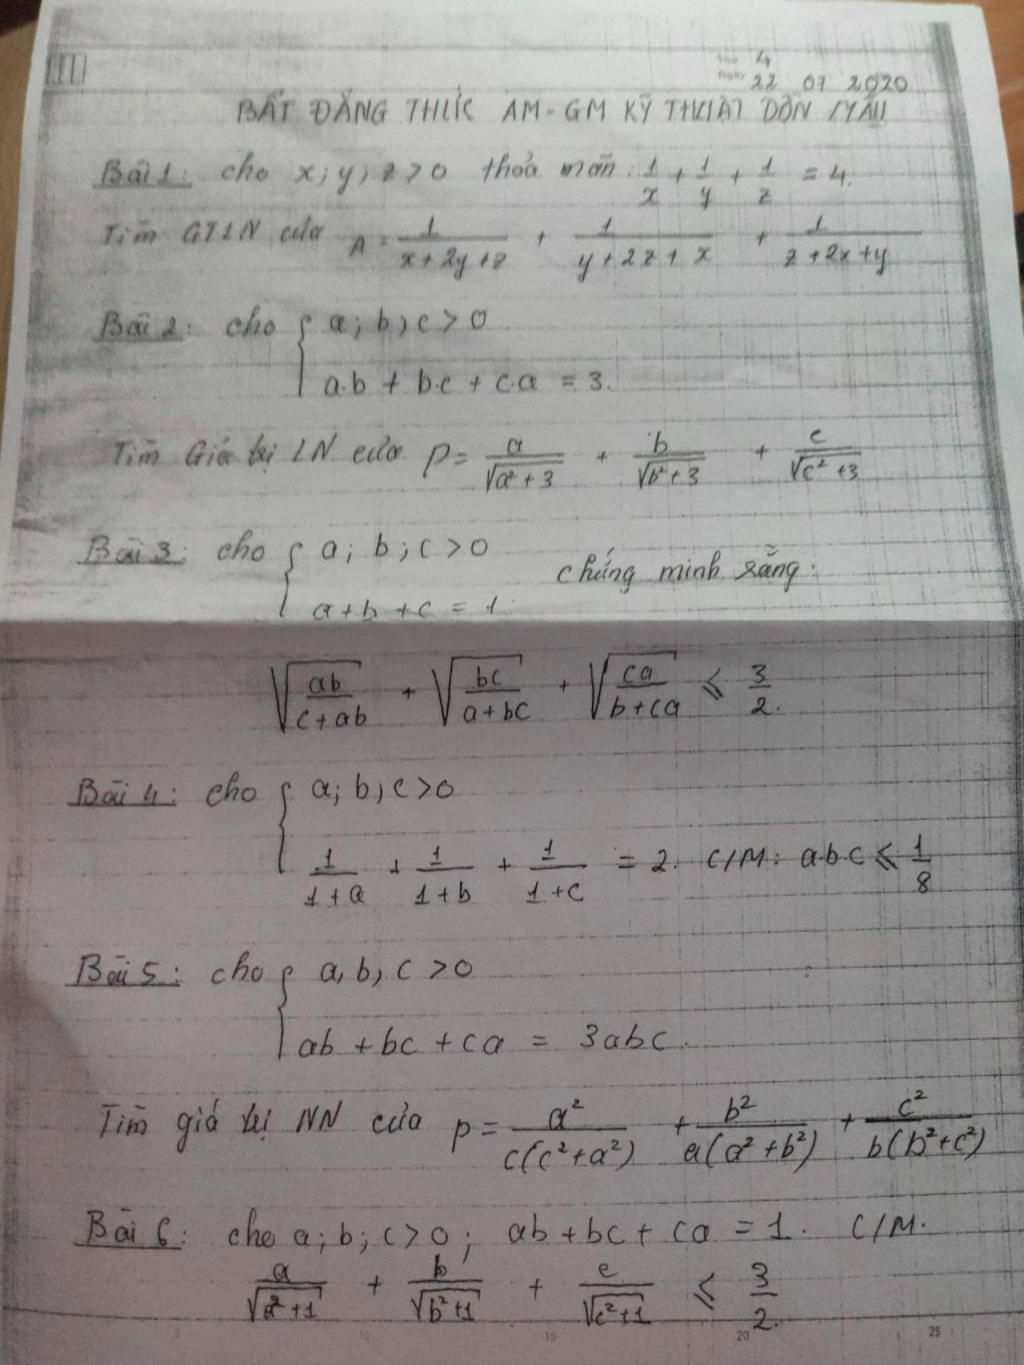 Thứ 4
Ngày 22 07 2020
BẤT ĐẲNG THỨC AM-GM KỸ THUẬT DỒN MẪU
Bài 1: cho x; y; z > 0 thỏa mãn: 1/x + 1/y + 1/z = 4.
Tìm GTLN của A = 1/(x+2y+z) + 1/(y+2z+x) + 1/(z+2x+y)
Bài 2: cho { a; b; c > 0
a.b + b.c + c.a = 3.
Tìm Giá trị LN của P = a/√(a²+3) + b/√(b²+3) + c/√(c²+3)
Bài 3: cho { a; b; c > 0
a+b+c = 1. chứng minh rằng:
√(ab/(c+ab)) + √(bc/(a+bc)) + √(ca/(b+ca)) ≤ 3/2.
Bài 4: cho { a; b; c > 0
1/(1+a) + 1/(1+b) + 1/(1+c) = 2. C/M: a.b.c ≤ 1/8
Bài 5: cho { a, b, c > 0
ab + bc + ca = 3abc.
Tìm giá trị NN của P = a²/(c(c²+a²)) + b²/(a(a²+b²)) + c²/(b(b²+c²))
Bài 6: cho a; b; c > 0; ab + bc + ca = 1. C/M.
a/√(a²+1) + b/√(b²+1) + c/√(c²+1) ≤ 3/2.
15 20 25